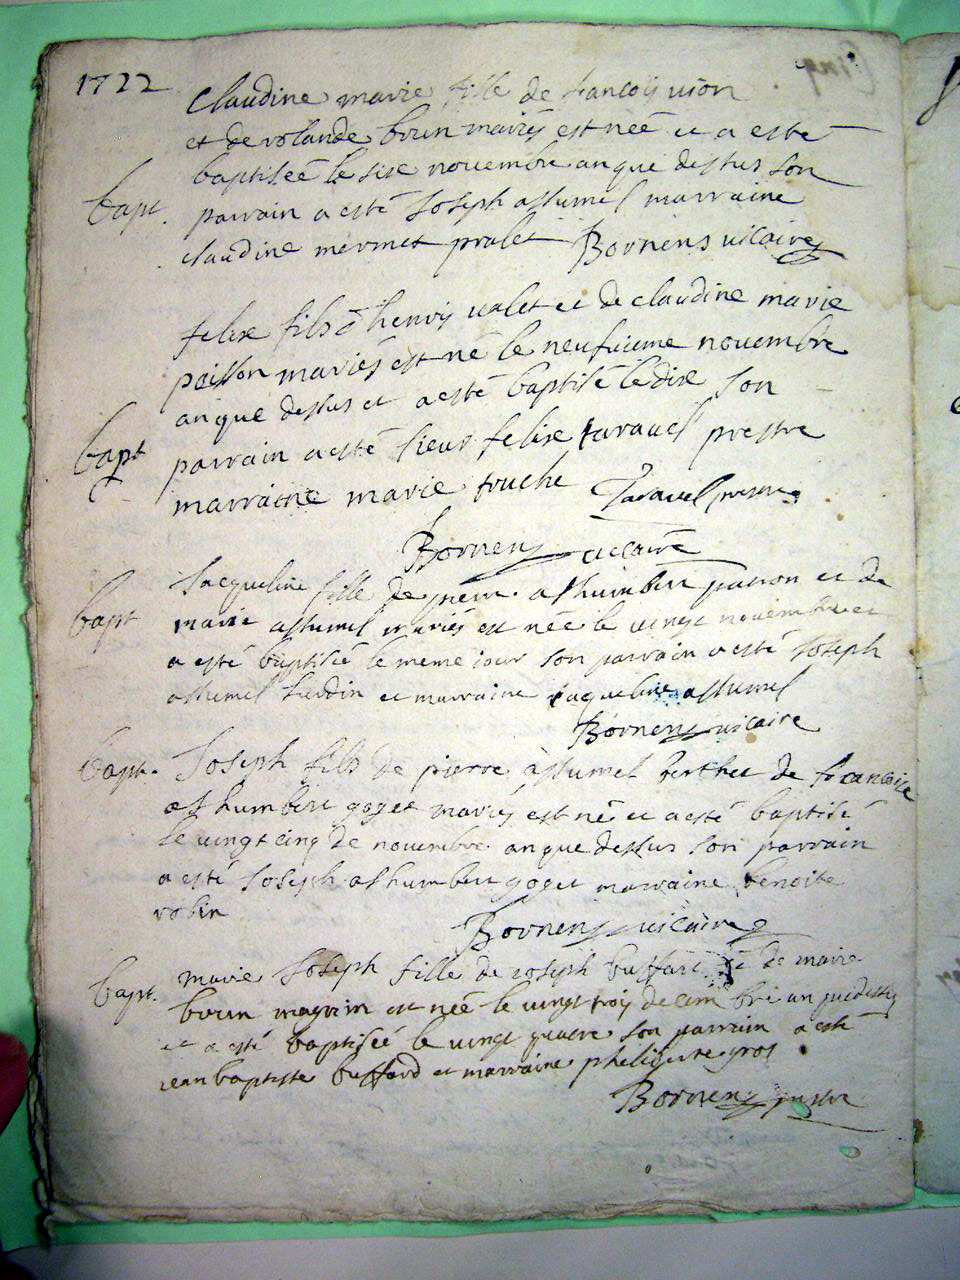 1722
Claudine marie fille de francois vion
et de rolande brun mariés est née et a esté
baptisée le sixe novembre an que dessus son
bapt. parrain a esté Joseph assumel marraine
claudine mermet pralet Bornens vicaire
felixe fils d henry valet et de claudine marie
poisson mariés est né le neufvieme novembre
an que dessus et a esté baptisé le dixe son
bapt parrain a esté sieur felixe taravel prestre
marraine marie touche Taravel prestre
Bornens vicaire
Jacqueline fille de pierre ashumbert patron et de
bapt marie assumel mariés est née le vingt novembre et
a esté baptisée le meme iour son parrain a esté Joseph
assumel et marraine iaqueline assumel
Bornens vicaire
bapt. Joseph fils de pierre assumel berthet de francoise
ashumbert goget mariés est né et a esté baptisé
le vingt cinq de novembre an que dessus son parrain
a esté Joseph ashumbert goget marraine benoite
robin
Bornens vicaire
marie Joseph fille de ioseph buffart et de marie
bapt. brun magnin est née le vingt troy decembre an que dessus
et a esté baptisée le vingt quatre son parrain a esté
iean baptiste buffard et marraine philiberte gros
Bornens prestre